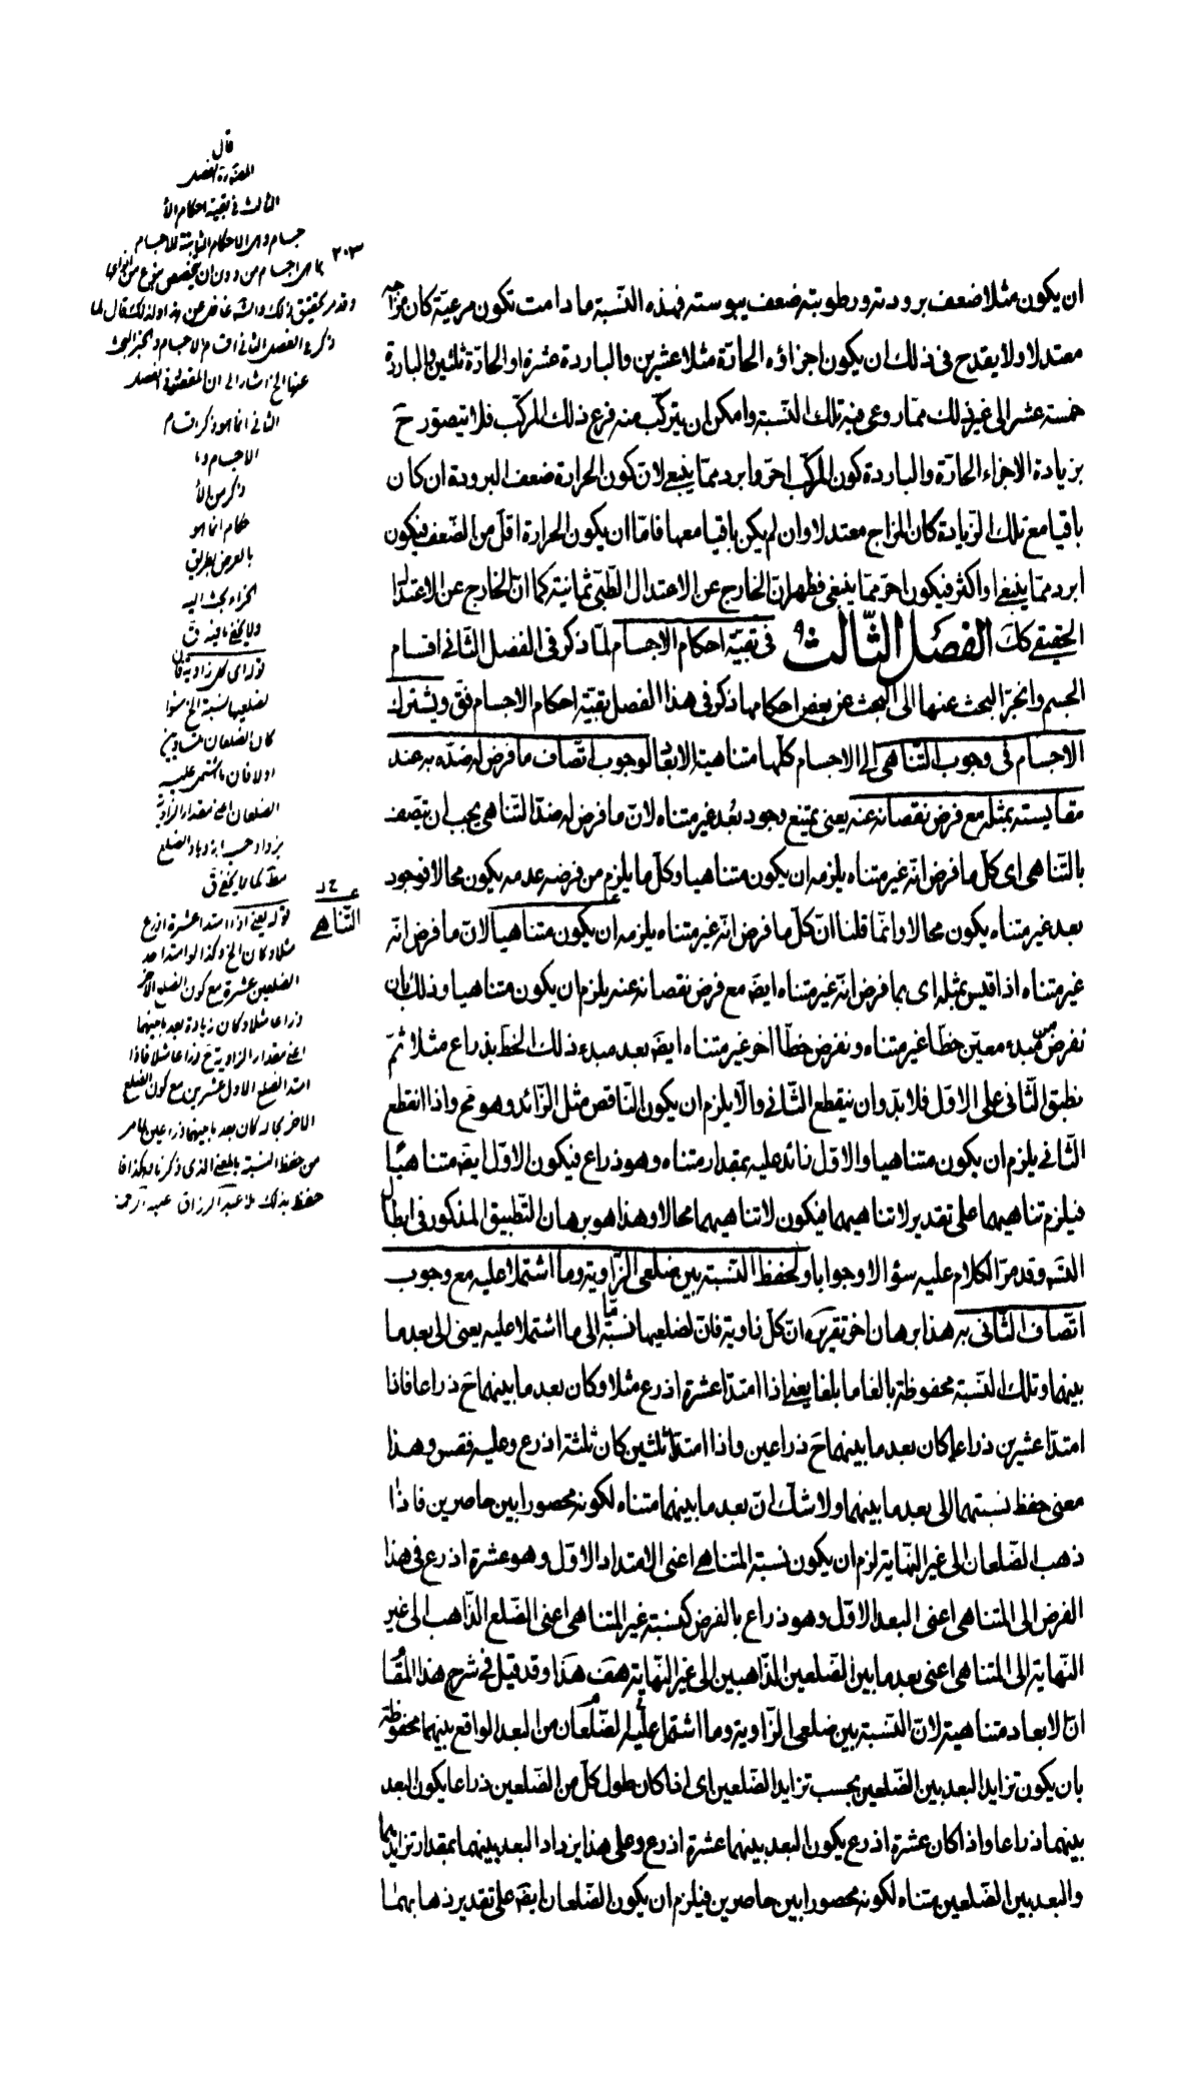 ان يكون مثلا ضعف برودته ورطوبته ضعف يبوسته فهذه النسبة ما دامت تكون مرعيّة كان مزاجه
معتدلا ولا يقدح فى ذلك ان يكون اجزاؤه الحارّة مثلا عشرين والباردة عشرة او الحارّة ثلثين والباردة
خمسة عشر الى غير ذلك ممّا روعى فيه تلك النسبة وامكن ان يتركّب منه فرع ذلك المركّب فلا يتصوّر حَ
بزيادة الاجزاء الحارّة والباردة كون المركّب احرّ وابرد ممّا ينبغى لان كون الحرارة ضعف البرودة ان كان
باقيا مع تلك الزيادة كان المزاج معتدلا وان لم يكن باقيا معها فامّا ان يكون الحرارة اقلّ من الضّعف فيكون
ابرد ممّا ينبغى او اكثر فيكون احرّ ممّا ينبغى فظهر انّ الخارج عن الاعتدال الطّبّى ثمانية كما انّ الخارج عن الاعتدال
الحقيقى كك الفصل الثّالث فى بقيّة احكام الاجسام لمّا ذكر فى الفصل الثّانى اقسام
الجسم وانجرّ البحث عنها الى البحث عن بعض احكامها ذكر فى هذا الفصل بقيّة احكام الاجسام فقَ ويشترك
الاجسام فى وجوب التّناهى اى الاجسام كلّها متناهية الابعاد لوجوب اتّصاف ما فرض له ضدّه به عند
مقايسته بمثله مع فرض نقصانه عنه يعنى يمتنع وجود بُعد غير متناه لانّ ما فرض له ضدّ التّناهى يجب ان يتّصف
بالتّناهى اى كلّ ما فرض انّه غير متناه يلزمه ان يكون متناهيا وكلّ ما يلزم من فرضه عدمه يكون محالا فوجود
بعد غير متناه يكون محالا وانّما قلنا انّ كلّ ما فرض انّه غير متناه يلزمه ان يكون متناهيا لانّ ما فرض انّه
غير متناه اذا قيس بمثله اى بما فرض انّه غير متناه ايضَ مع فرض نقصانه عنه يلزم ان يكون متناهيا وذلك بان
نفرض من مبدء معيّن خطّا غير متناه ونفرض خطّا اخر غير متناه ايضَ بعد مبدء ذلك الخطّ بذراع مثلا ثمّ
نطبق الثّانى على الاوّل فلا بدّ وان ينقطع الثّانى والّا يلزم ان يكون النّاقص مثل الزّائد وهو مَح واذا انقطع
الثّانى يلزم ان يكون متناهيا والاوّل زائد عليه بمقدار متناه وهو ذراع فيكون الاوّل ايضَ متناهيًا
فيلزم تناهيهما على تقدير لا تناهيهما فيكون لا تناهيهما محالا وهذا هو برهان التّطبيق المذكور فى ابطال
التّسَه وقد مرّ الكلام عليه سؤالا وجوابا ولحفظ النّسبة بين ضلعى الزّاوية وما اشتملا عليه مع وجوب
اتّصاف الثّانى به هذا برهان اخر تقريره انّ كلّ زاوية فانّ لضلعيها نسبة مّا الى ما اشتملا عليه يعنى الى بعد ما
بينهما وتلك النّسبة محفوظة بالغا ما بلغا يعنى اذا امتدّا عشرة اذرع مثلا وكان بعد ما بينهما حَ ذراعا فاذا
امتدّا عشرين ذراعا كان بعد ما بينهما حَ ذراعين واذا امتدّا ثلثين كان ثلثة اذرع وعليه فقس وهذا
معنى حفظ نسبتهما الى بعد ما بينهما ولا شكّ انّ بعد ما بينهما متناه لكونه محصورا بين حاصرين فاذا
ذهب الضّلعان الى غير النّهاية لزم ان يكون نسبة المتناهى اعنى الامتداد الاوّل وهو عشرة اذرع فى هذا
الفرض الى المتناهى اعنى البعد الاوّل وهو ذراع بالفرض كنسبة غير المتناهى اعنى الضّلع الذّاهب الى غير
النّهاية الى المتناهى اعنى بعد ما بين الضّلعين الذّاهبين الى غير النّهاية هَف هذا وقد قيل فى شرح هذا المقام
انّ الابعاد متناهية لانّ النّسبة بين ضلعى الزّاوية وما اشتمل عليه الضّلعان من البعد الواقع بينهما محفوظة
بان يكون تزايد البعد بين الضّلعين بحسب تزايد الضّلعين اى اذا كان طول كلّ من الضّلعين ذراعا يكون البعد
بينهما ذراعا واذا كان عشرة اذرع يكون البعد بينهما عشرة اذرع وعلى هذا يزداد البعد بينهما بمقدار تزايدهما
والبعد بين الضّلعين متناه لكونه محصورا بين حاصرين فيلزم ان يكون الضّلعان ايضَ على تقدير ذهابهما
قال
الفصل
الثالث فى بقية احكام الا
جسام وهى الاحكام الثابتة للاجسام
٢٠٣
ذكر فى الفصل الثانى اقسام الاجسام وانجر البحث
عنها الخ اشار الى ان المقصود فى الفصل
الثانى انما هو ذكر اقسام
الاجسام وما
ذكر من الا
حكام انما هو
بالعرض بطريق
انجراء البحث اليه
ولا يخفى ما فيه ق
قوله اى كل زاوية فان
لضلعيها نسبة الخ سواء
كان الضلعان متساويين
او لا فان ما اشتمل عليه
الضلعان اعنى مقدار الزاوية
يزداد بحسب ازدياد الضلع
مطلقا كما لا يخفى ق
التّناهى
قوله يعنى اذا امتدا عشرة اذرع
مثلا وكان الخ وكذا لو امتد احد
الضلعين عشرة مع كون الضلع الاخر
ذراعا مثلا وكان زيادة بعد ما بينهما
اعنى مقدار الزاوية حَ ذراعا مثلا فاذا
امتد الضلع الاول عشرين مع كون الضلع
الاخر بحاله كان بعد ما بينهما ذراعين لما مر
من حفظ النسبة بالمعنى الذى ذكرناه هكذا فا
حفظ بذلك ملا عبد الرزاق عليه الرحمة